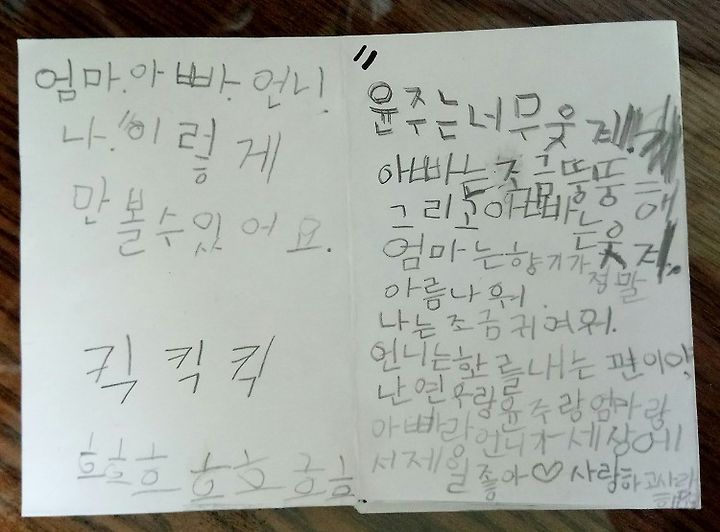 엄마.아빠.언니.
나."이렇게
만볼수있어요.
킥킥킥
흐흐흐흐흐흐흐
"
윤주는너무웃계!
아빠는조금뚱뚱해
그리고아빠는웃겨.
엄마는향기가정말
아름나워.
나는조금귀여워.
언니는화를내는편이야,
난연우랑윤주랑엄마랑
아빠랑언니가세상에
서제일좋아♡사랑하고사랑
해